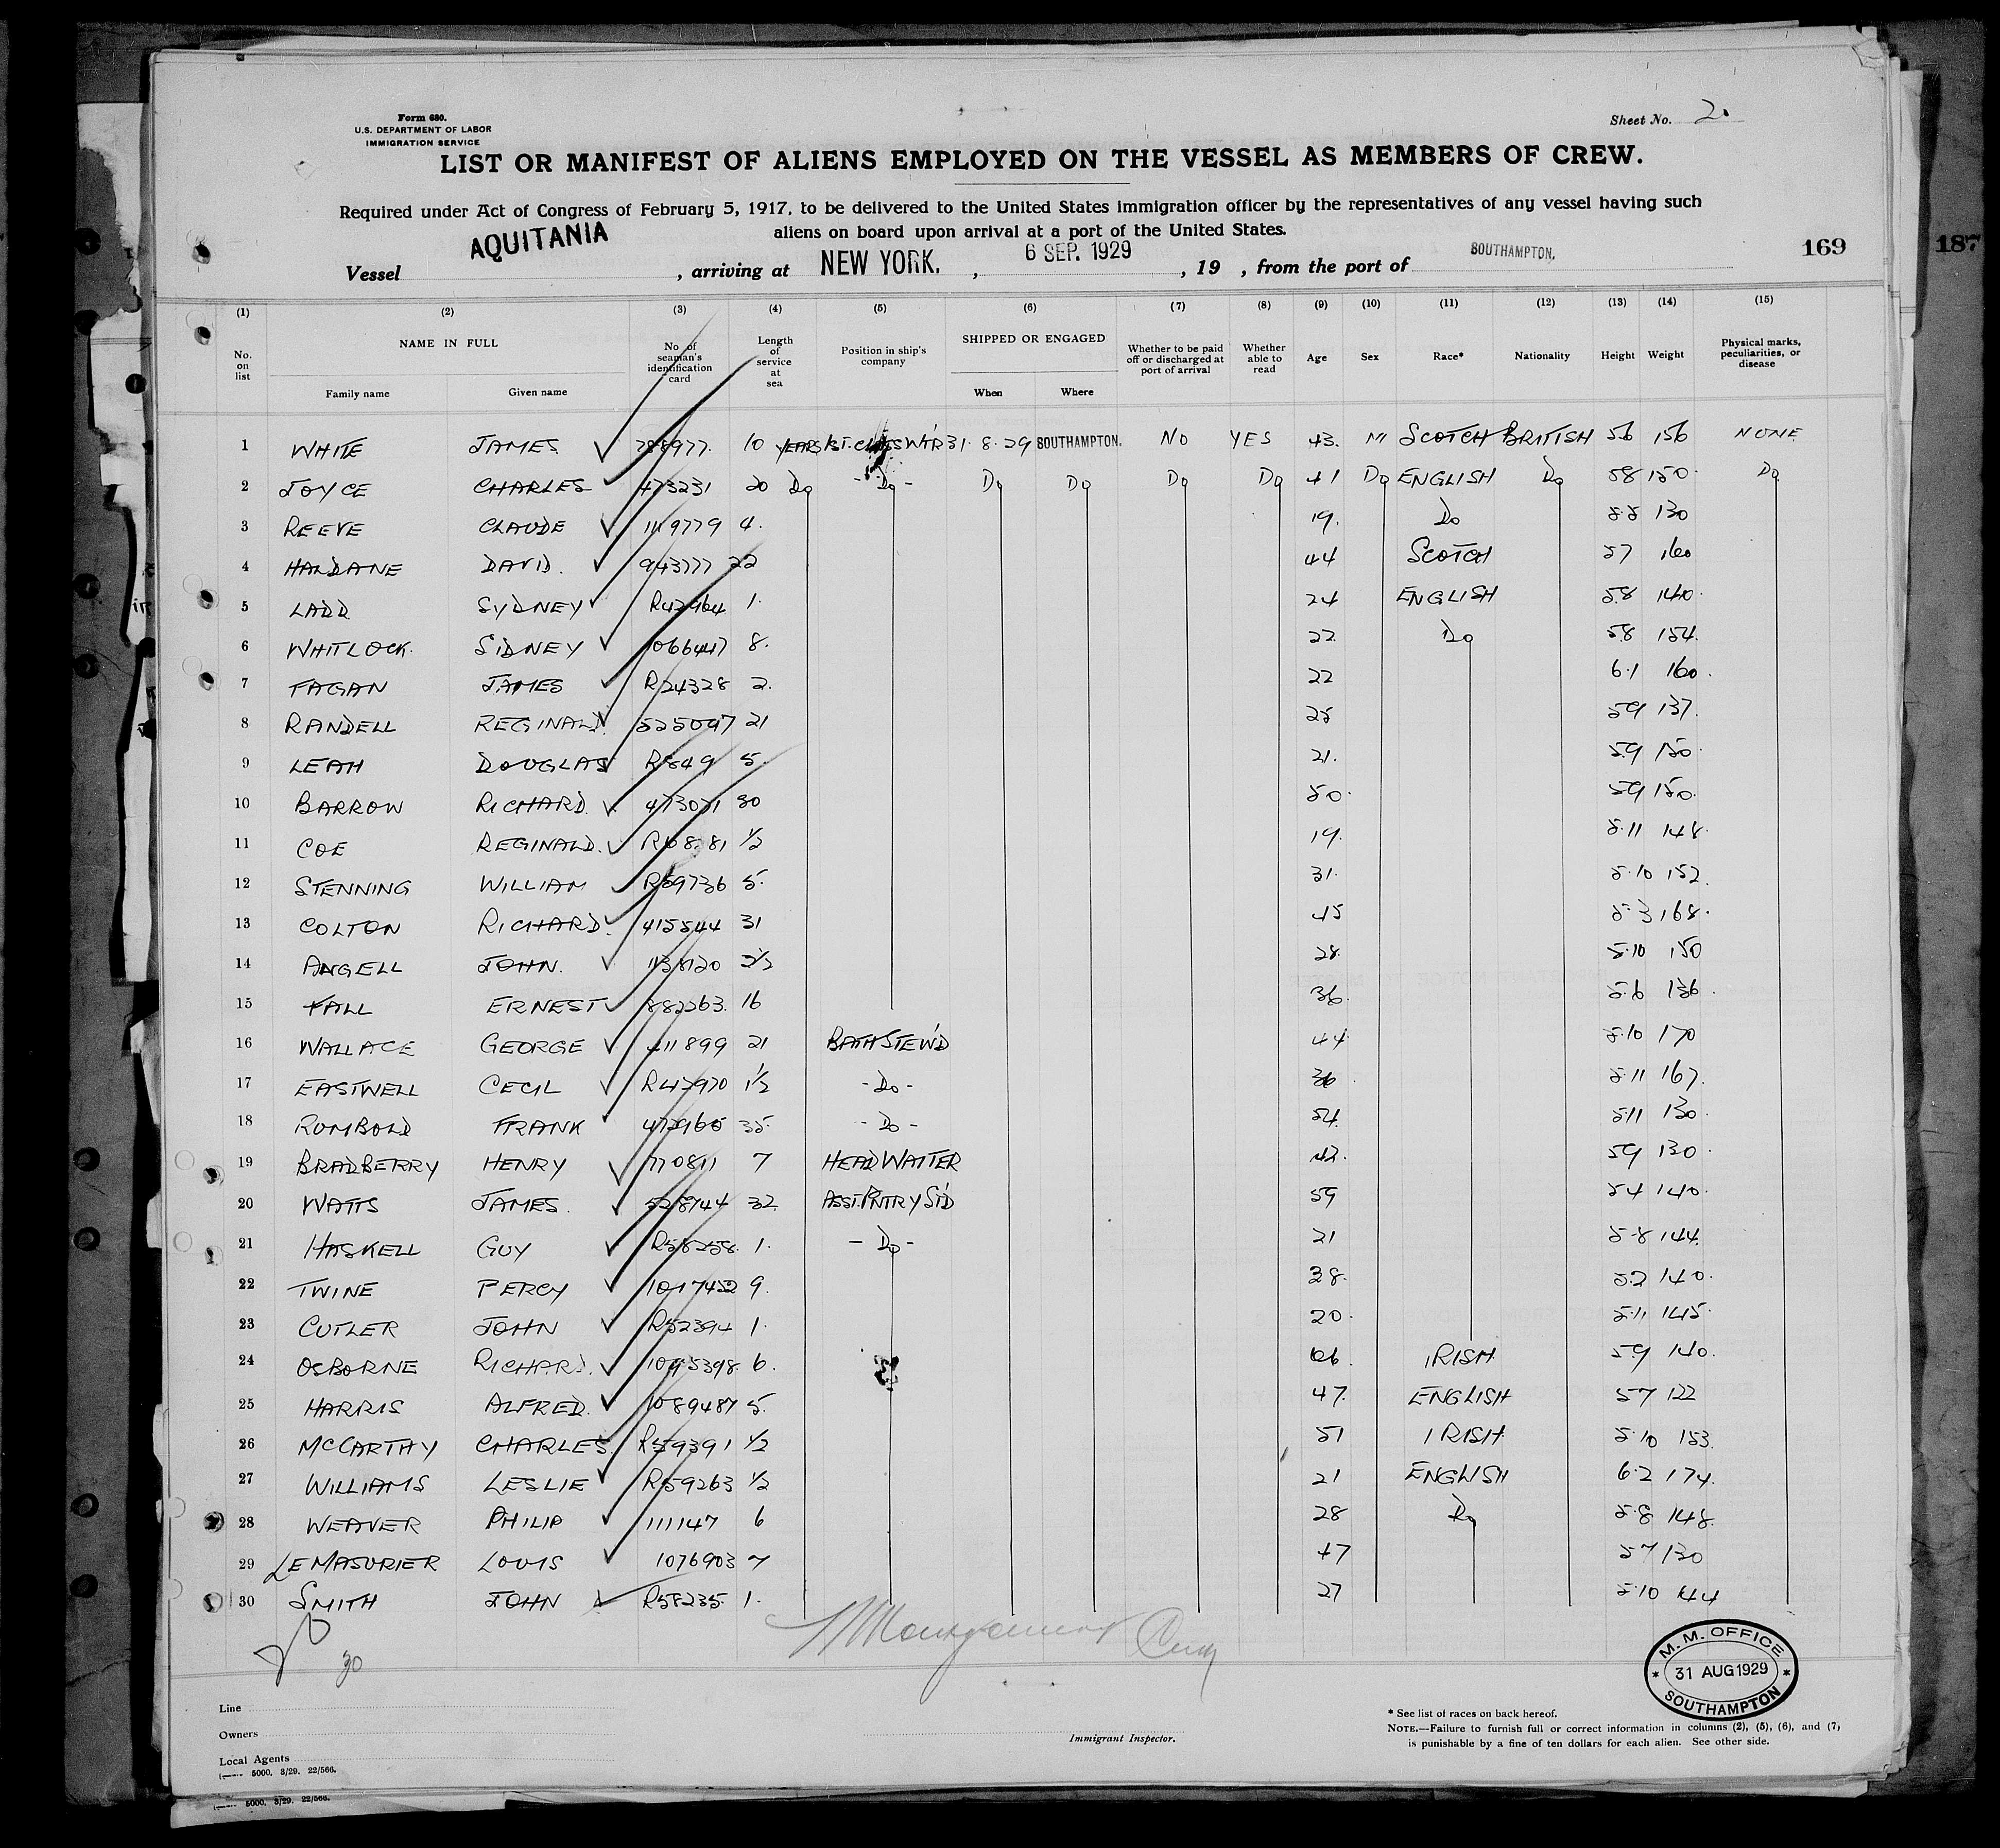 Form 680.
U.S. DEPARTMENT OF LABOR
IMMIGRATION SERVICE
Sheet No. 20
LIST OR MANIFEST OF ALIENS EMPLOYED ON THE VESSEL AS MEMBERS OF CREW.
Required under Act of Congress of February 5, 1917, to be delivered to the United States immigration officer by the representatives of any vessel having such
aliens on board upon arrival at a port of the United States.
Vessel AQUITANIA, arriving at NEW YORK., 6 SEP. 1929, 19 , from the port of SOUTHAMPTON.
169
187
(1) (2) (3) (4) (5) (6) (7) (8) (9) (10) (11) (12) (13) (14) (15)
No. on list NAME IN FULL Family name Given name No. of seaman's identification card Length of service at sea Position in ship's company SHIPPED OR ENGAGED When Where Whether to be paid off or discharged at port of arrival Whether able to read Age Sex Race* Nationality Height Weight Physical marks, peculiarities, or disease
1 WHITE JAMES 10 YEARS 31.8.29 SOUTHAMPTON. NO YES 43. M SCOTCH BRITISH 5.6 156 NONE
2 JOYCE CHARLES 473231 20 Do -Do- Do Do Do Do 41 Do ENGLISH Do 5.8 150. Do
3 REEVE CLAUDE 1119779 4. 19. Do 5.8 130
4 HALDANE DAVID. 943777 22 44 SCOTCH 5.7 160
5 LADD SYDNEY 1. 24 ENGLISH 5.8 140.
6 WHITLOCK. SIDNEY 1066447 8. 22 Do 5.8 154.
7 FAGAN JAMES R24328 2. 22 6.1 160.
8 RANDELL REGINALD. 525097 21 5.9 137.
9 LEAH DOUGLAS R849 5. 21. 5.9 150.
10 BARROW RICHARD. 30 50. 5.9 150.
11 COE REGINALD. 1/2 19. 5.11 148.
12 STENNING WILLIAM R59736 5. 31. 5.10 152.
13 COLTON RICHARD. 415544 31 45 5.3 168.
14 ANGELL JOHN. 1138120 2 1/2 28. 5.10 150
15 FALL ERNEST 882263. 16 36. 5.6 136.
16 WALLACE GEORGE 411899 21 BATH STEW'D 44. 5.10 170
17 EASTWELL CECIL R47970 1 1/2 -Do- 36. 5.11 167.
18 RUMBOLD FRANK 35. -Do- 54. 5.11 130.
19 BRADBERRY HENRY 770811 7 HEAD WAITER 42. 5.9 130.
20 WATTS JAMES. 528944 32. ASST. PNTRY ST'D 59 5.4 140.
21 HASKELL GUY R58258. 1. -Do- 21 5.8 144.
22 TWINE PERCY 1017452 9. 28. 5.2 140.
23 CUTLER JOHN R52394 1. 20. 5.11 145.
24 OSBORNE RICHARD. 1095398. 6. IRISH 5.9 140.
25 HARRIS ALFRED. 1089487 5. 47. ENGLISH 5.7 122
26 McCARTHY CHARLES. R59391 1/2 51 IRISH 5.10 153.
27 WILLIAMS LESLIE R59263 1/2 21 ENGLISH 6.2 174.
28 WEAVER PHILIP 111147 6 28 Do 5.8 148.
29 LE MASURIER LOUIS 1076903 7 47 5.7 130
30 SMITH JOHN R58235. 1. 27 5.10 144
30
M. M. OFFICE
31 AUG 1929
SOUTHAMPTON
Line
Owners
Local Agents
5000. 3/29. 22/566.
Immigrant Inspector.
* See list of races on back hereof.
NOTE.—Failure to furnish full or correct information in columns (2), (5), (6), and (7)
is punishable by a fine of ten dollars for each alien. See other side.
5000. 3/29. 22/566.